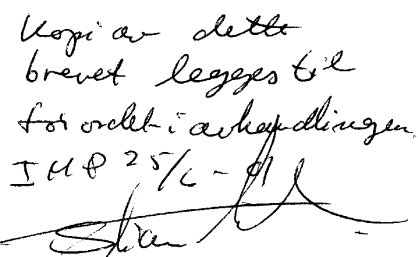 Kopi av dette
brevet legges til
forordet i avhandlingen
25/6 - 91
Stian